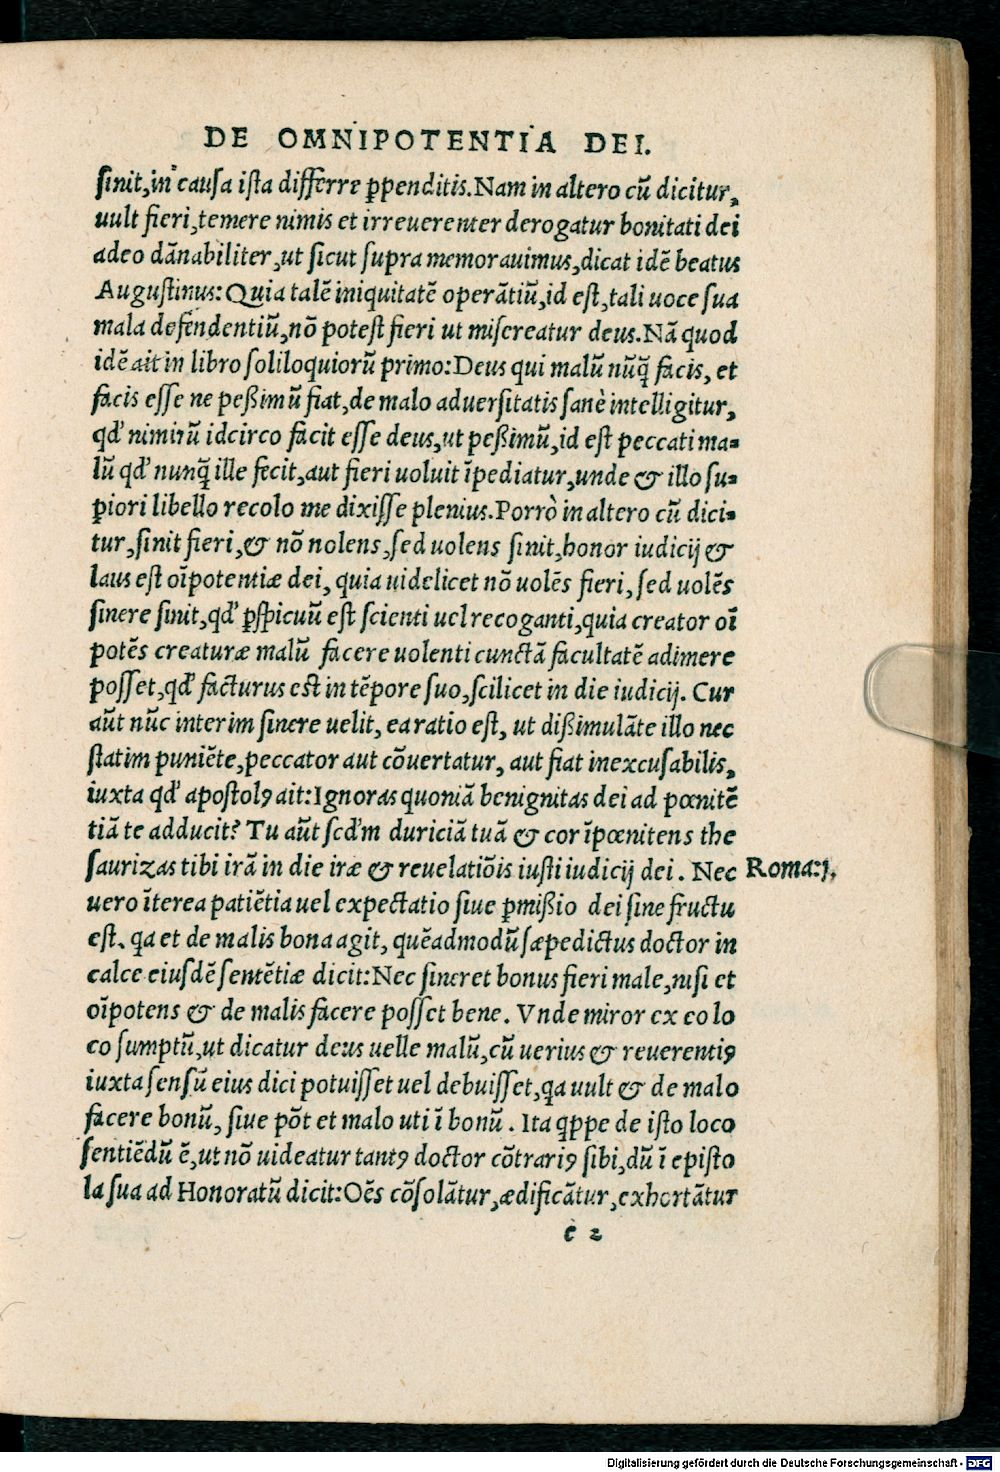 DE OMNIPOTENTIA DEI.
sinit, in causa ista differre ꝑpenditis. Nam in altero cũ dicitur,
uult fieri, temere nimis et irreuerenter derogatur bonitati dei
adeo dãnabiliter, ut sicut supra memorauimus, dicat idẽ beatus
Augustinus: Quia talẽ iniquitatẽ operãtiũ, id est, tali uoce sua
mala defendentiũ, nõ potest fieri ut misereatur deus. Nã quod
idẽ ait in libro soliloquiorũ primo: Deus qui malũ nũq̃ facis, et
facis esse ne peßimũ fiat, de malo aduersitatis sanè intelligitur,
qđ nimirũ idcirco facit esse deus, ut peßimũ, id est peccati ma-
lũ qđ nunq̃ ille fecit, aut fieri uoluit ĩpediatur, unde & illo su-
ꝑiori libello recolo me dixisse plenius. Porrò in altero cũ dici-
tur, sinit fieri, & nõ nolens, sed uolens sinit, honor iudicij &
laus est oĩpotentiæ dei, quia uidelicet nõ uolẽs fieri, sed uolẽs
sinere sinit, qđ ꝑspicuũ est scienti uel recoganti, quia creator oĩ
potẽs creaturæ malũ facere uolenti cunctã facultatẽ adimere
posset, qđ facturus est in tẽpore suo, scilicet in die iudicij. Cur
aũt nũc interim sinere uelit, ea ratio est, ut dißimulãte illo nec
statim puniẽte, peccator aut cõuertatur, aut fiat inexcusabilis,
iuxta qđ apostolꝰ ait: Ignoras quoniã benignitas dei ad pœnitẽ
tiã te adducit? Tu aũt scđm duriciã tuã & cor ĩpœnitens the
saurizas tibi irã in die iræ & reuelatiõis iusti iudicij dei. Nec
Roma: j.
uero ĩterea patiẽtia uel expectatio siue ꝑmißio dei sine fructu
est, qa et de malis bona agit, quẽadmodũ sæpedictus doctor in
calce eiusdẽ sentẽtiæ dicit: Nec sineret bonus fieri male, nisi et
oĩpotens & de malis facere posset bene. Vnde miror ex eo lo
co sumptũ, ut dicatur deus uelle malũ, cũ uerius & reuerentiꝰ
iuxta sensũ eius dici potuisset uel debuisset, qa uult & de malo
facere bonũ, siue põt et malo uti ĩ bonũ. Ita qꝑpe de isto loco
sentiẽdũ ẽ, ut nõ uideatur tantꝰ doctor cõtrariꝰ sibi, dũ ĩ episto
la sua ad Honoratũ dicit: Oẽs cõsolãtur, ædificãtur, exhortãtur
c 2
Digitalisierung gefördert durch die Deutsche Forschungsgemeinschaft - DFG